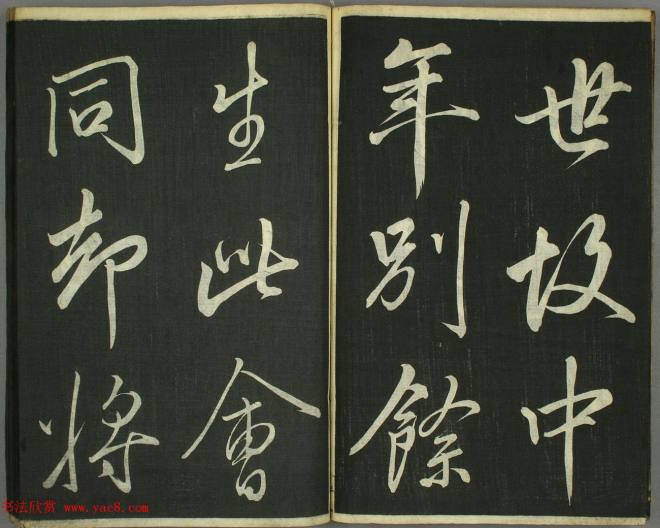 世故中
年別餘
生此會
同却將
书法欣赏 www.yac8.com